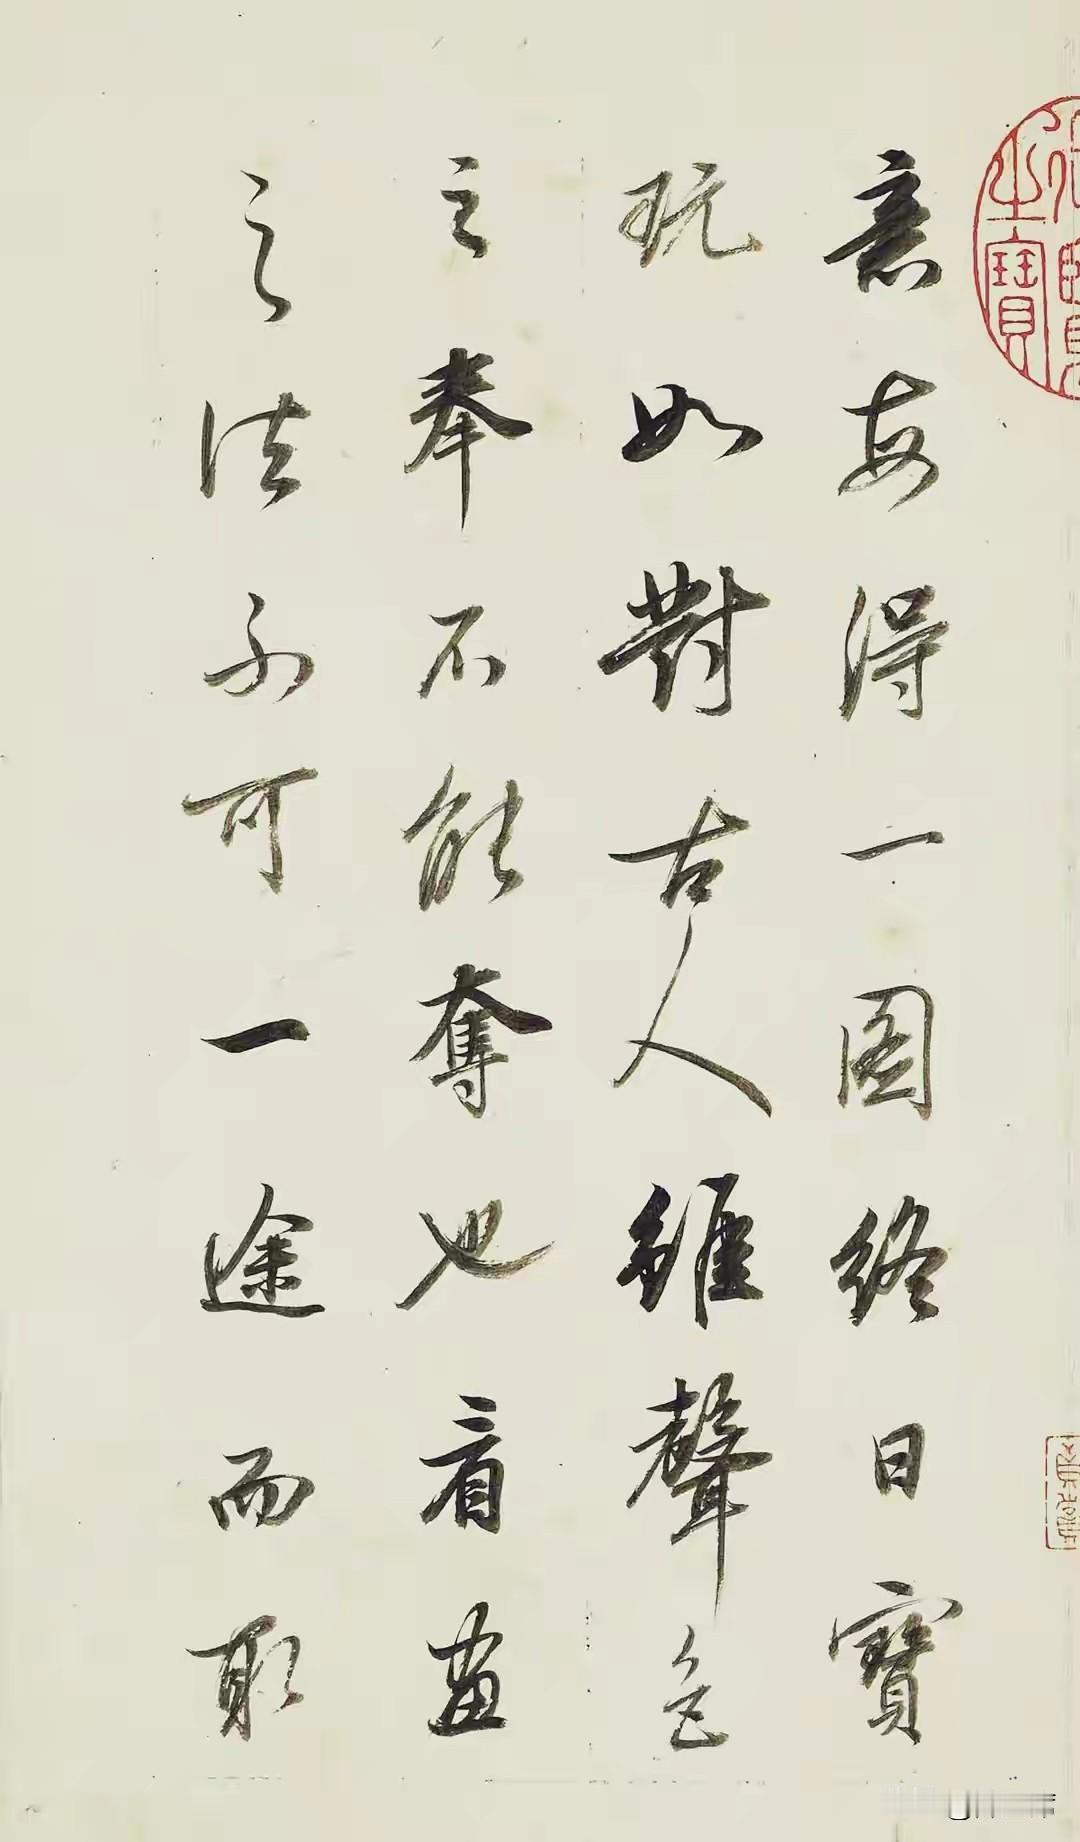 意每得一圖終日寶
玩如對古人雖聲色
之奉不能奪也看畫
之法不可一途而取